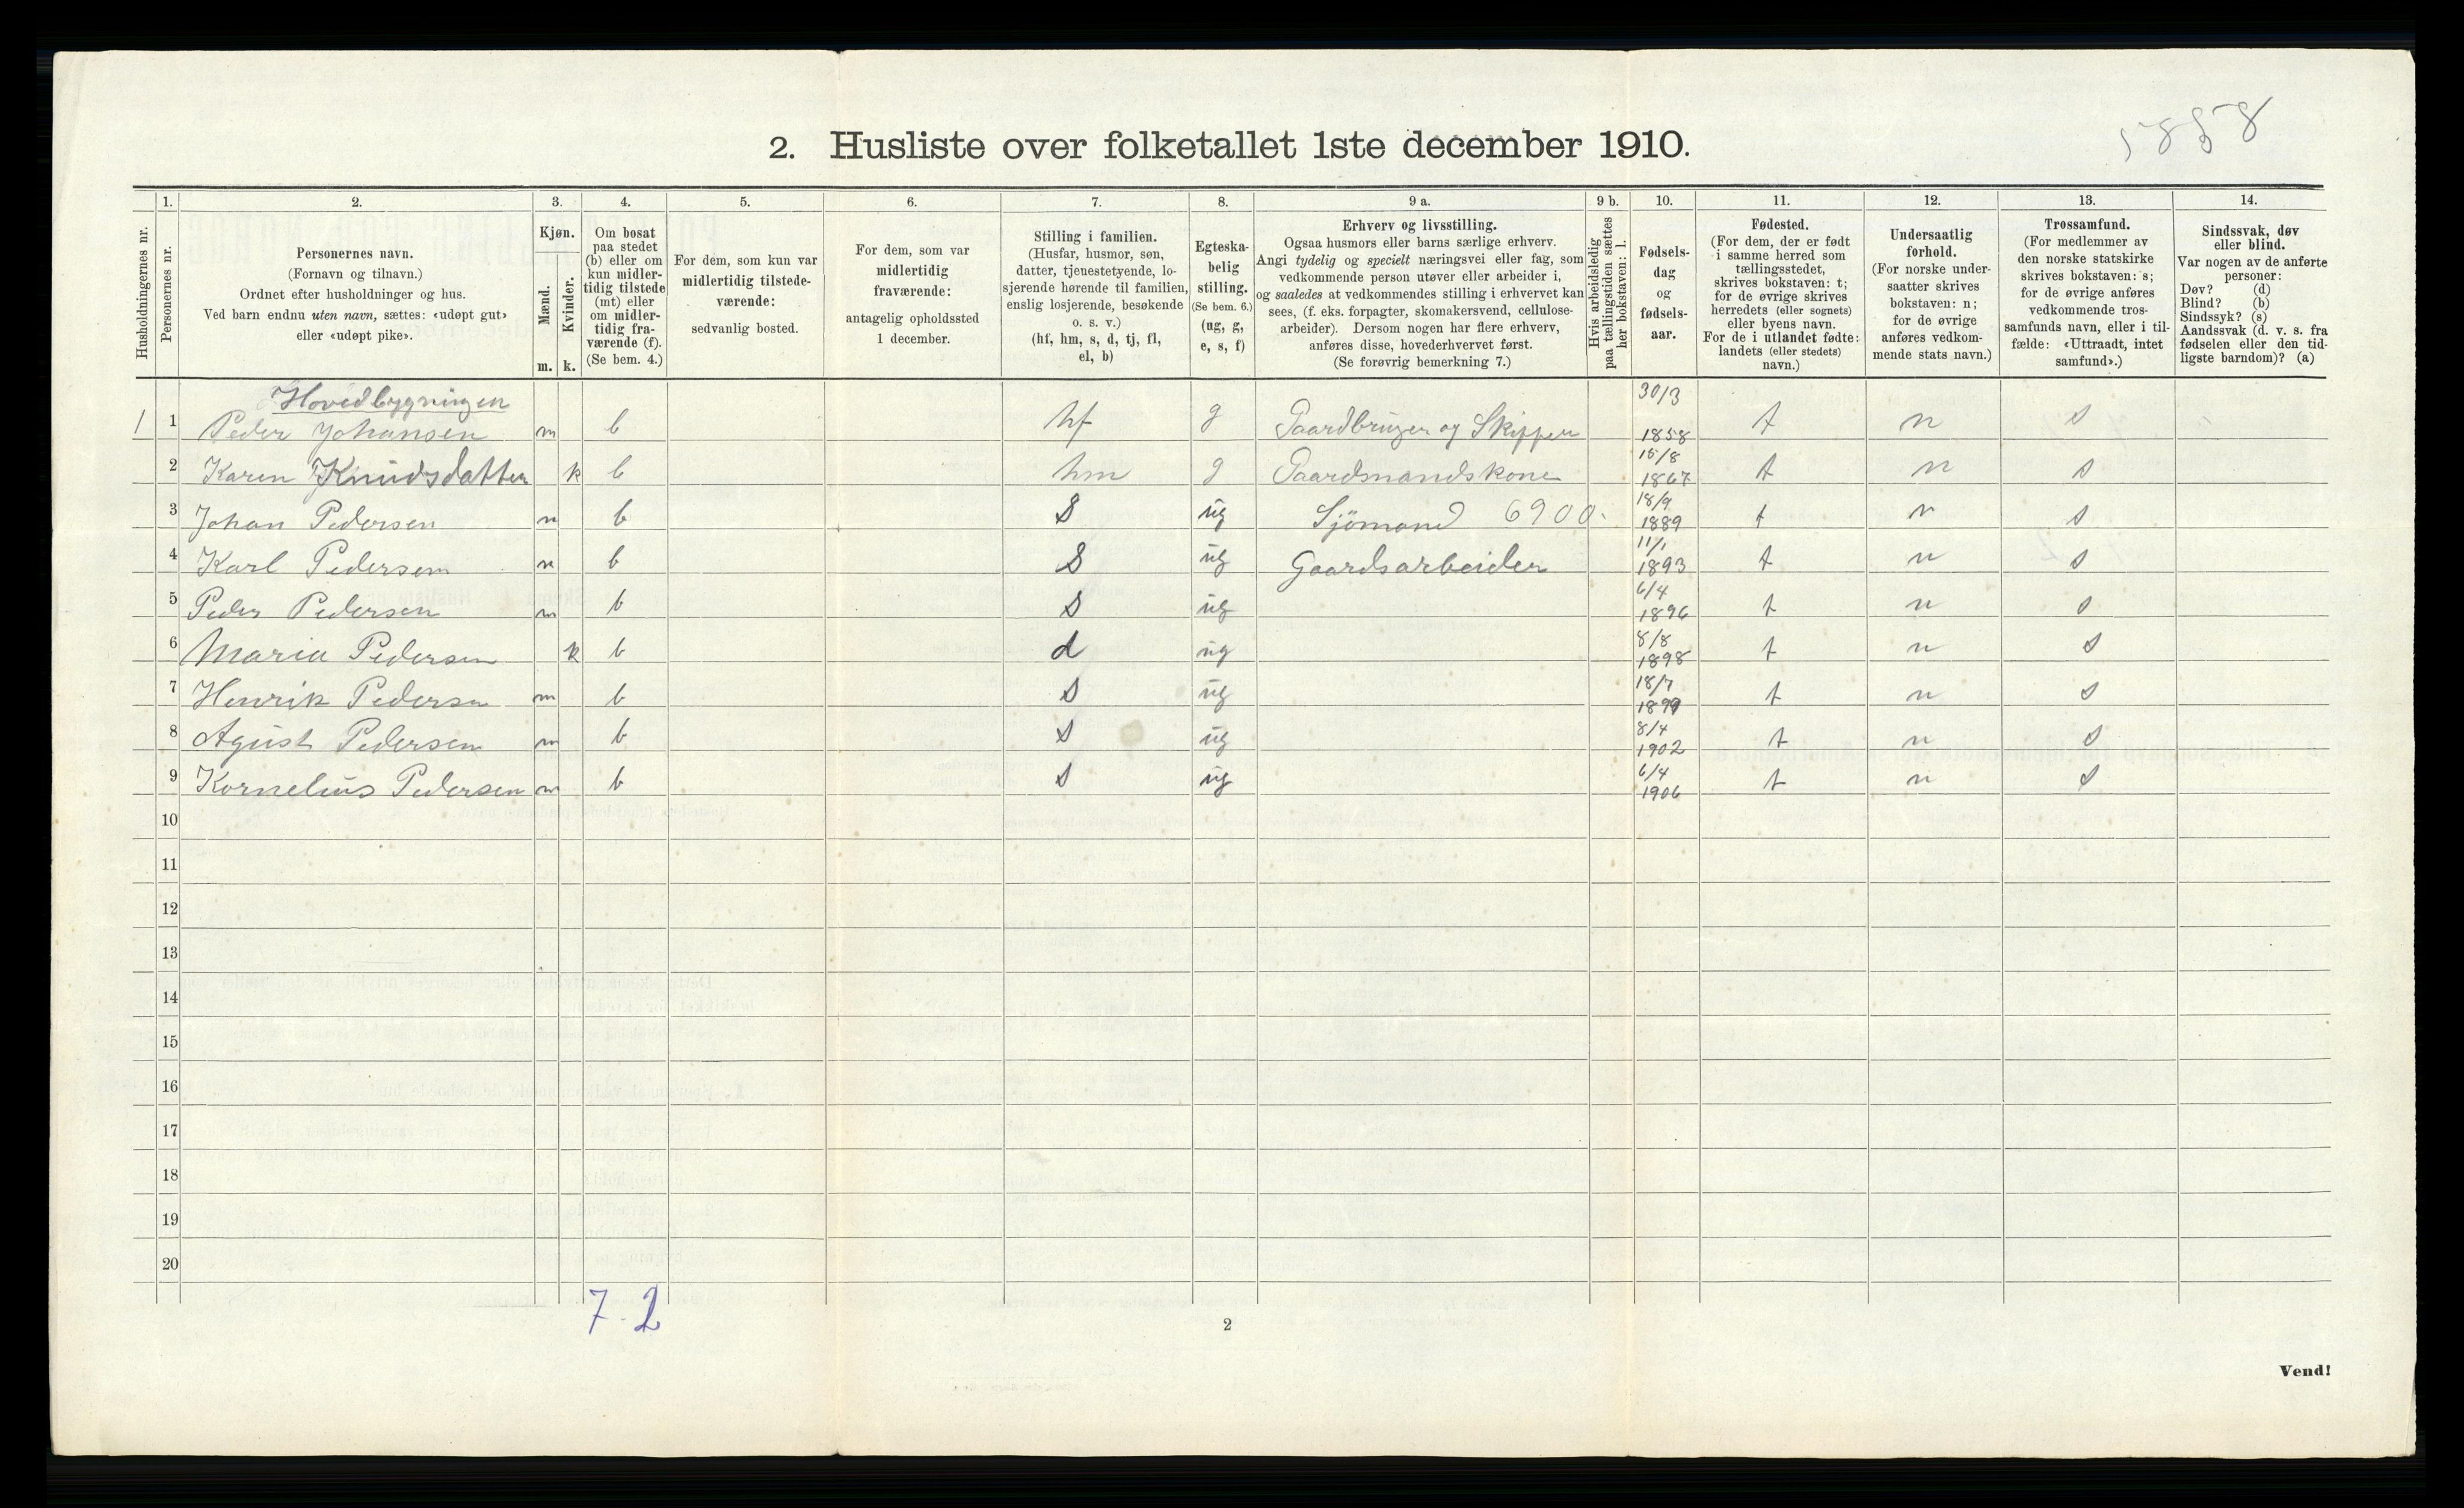 5858
2. Husliste over folketallet 1ste december 1910.
1. 2. 3. 4. 5. 6. 7. 8. 9 a. 9 b. 10. 11. 12. 13. 14.
Husholdningernes nr.
Personernes nr.
Personernes navn.
(Fornavn og tilnavn.)
Ordnet efter husholdninger og hus.
Ved barn endnu uten navn, sættes: «udøpt gut»
eller «udøpt pike».
Kjøn.
Mænd.
Kvinder.
m. k.
Om bosat
paa stedet
(b) eller om
kun midler-
tidig tilstede
(mt) eller
om midler-
tidig fra-
værende (f).
(Se bem. 4.)
For dem, som kun var
midlertidig tilstede-
værende:
sedvanlig bosted.
For dem, som var
midlertidig
fraværende:
antagelig opholdssted
1 december.
Stilling i familien.
(Husfar, husmor, søn,
datter, tjenestetyende, lo-
sjerende hørende til familien,
enslig losjerende, besøkende
o. s. v.)
(hf, hm, s, d, tj, fl,
el, b)
Egteska-
belig
stilling.
(Se bem. 6.)
(ug, g,
e, s, f)
Erhverv og livsstilling.
Ogsaa husmors eller barns særlige erhverv.
Angi tydelig og specielt næringsvei eller fag, som
vedkommende person utøver eller arbeider i,
og saaledes at vedkommendes stilling i erhvervet kan
sees, (f. eks. forpagter, skomakersvend, cellulose-
arbeider). Dersom nogen har flere erhverv,
anføres disse, hovederhvervet først.
(Se forøvrig bemerkning 7.)
Hvis arbeidsledig
paa tællingstiden sættes
her bokstaven: l.
Fødsels-
dag
og
fødsels-
aar.
Fødested.
(For dem, der er født
i samme herred som
tællingsstedet,
skrives bokstaven: t;
for de øvrige skrives
herredets (eller sognets)
eller byens navn.
For de i utlandet fødte:
landets (eller stedets)
navn.)
Undersaatlig
forhold.
(For norske under-
saatter skrives
bokstaven: n;
for de øvrige
anføres vedkom-
mende stats navn.)
Trossamfund.
(For medlemmer av
den norske statskirke
skrives bokstaven: s;
for de øvrige anføres
vedkommende tros-
samfunds navn, eller i til-
fælde: «Uttraadt, intet
samfund».)
Sindssvak, døv
eller blind.
Var nogen av de anførte
personer:
Døv? (d)
Blind? (b)
Sindssyk? (s)
Aandssvak (d. v. s. fra
fødselen eller den tid-
ligste barndom)? (a)
Hovedbygningen
1 1 Peder Johansen m b hf g Gaardbruger og Skipper 30/3 1858 t n s
2 Karen Knudsdatter k b hm g Gaardmandskone 15/8 1867 t n s
3 Johan Pedersen m b S ug Sjömand 6900. 18/9 1889 t n s
4 Karl Pedersen m b S ug Gaardsarbeider 11/1 1893 t n s
5 Peder Pedersen m b S ug 6/4 1896 t n s
6 Maria Pedersen k b d ug 8/8 1898 t n s
7 Henrik Pedersen m b S ug 18/7 1899 t n s
8 Agust Pedersen m b S ug 8/4 1902 t n s
9 Kornelius Pedersen m b S ug 6/4 1906 t n s
10
11
12
13
14
15
16
17
18
19
20
7-2
2
Vend!